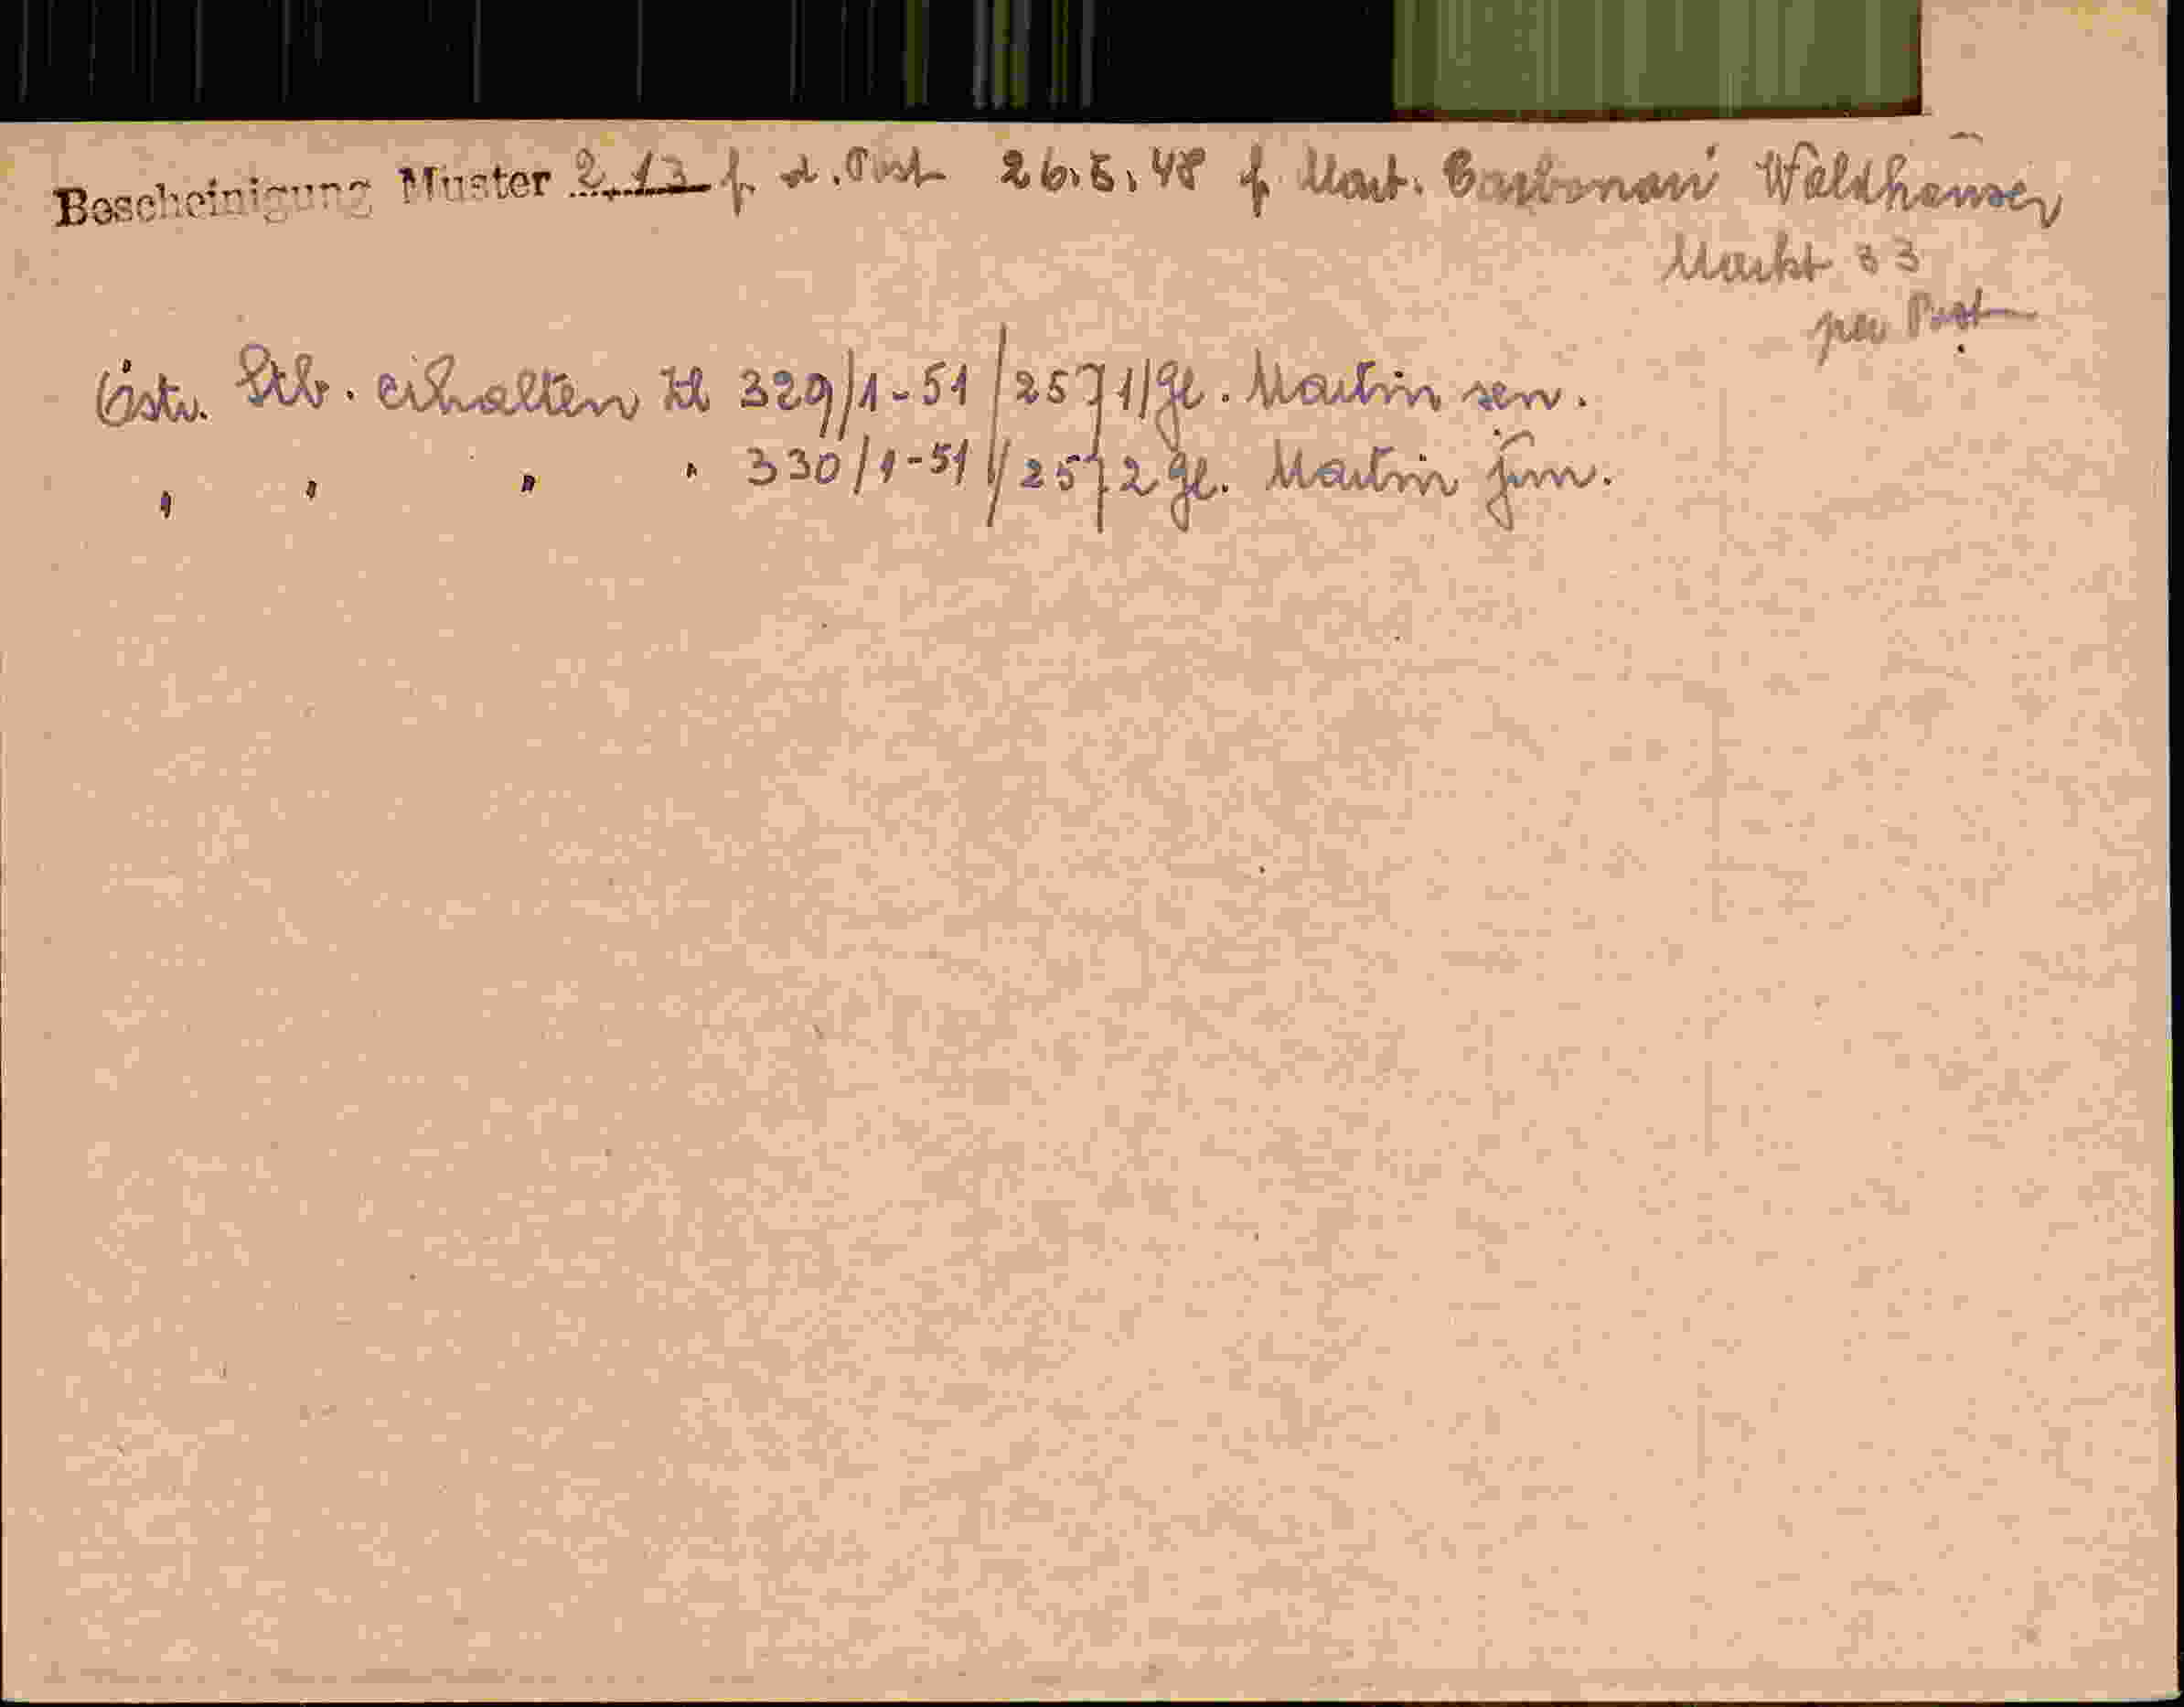 Bescheinigung Muster 2,13 f. d. Post 26.5.48 f. Mart. Carbonari Waldhausen
Markt 33
per Post
Östr. Stb. erhalten Zl 329/1-51/2571/Gl. Martin sen.
" " " " 330/1-51/2572 Gl. Martin jun.